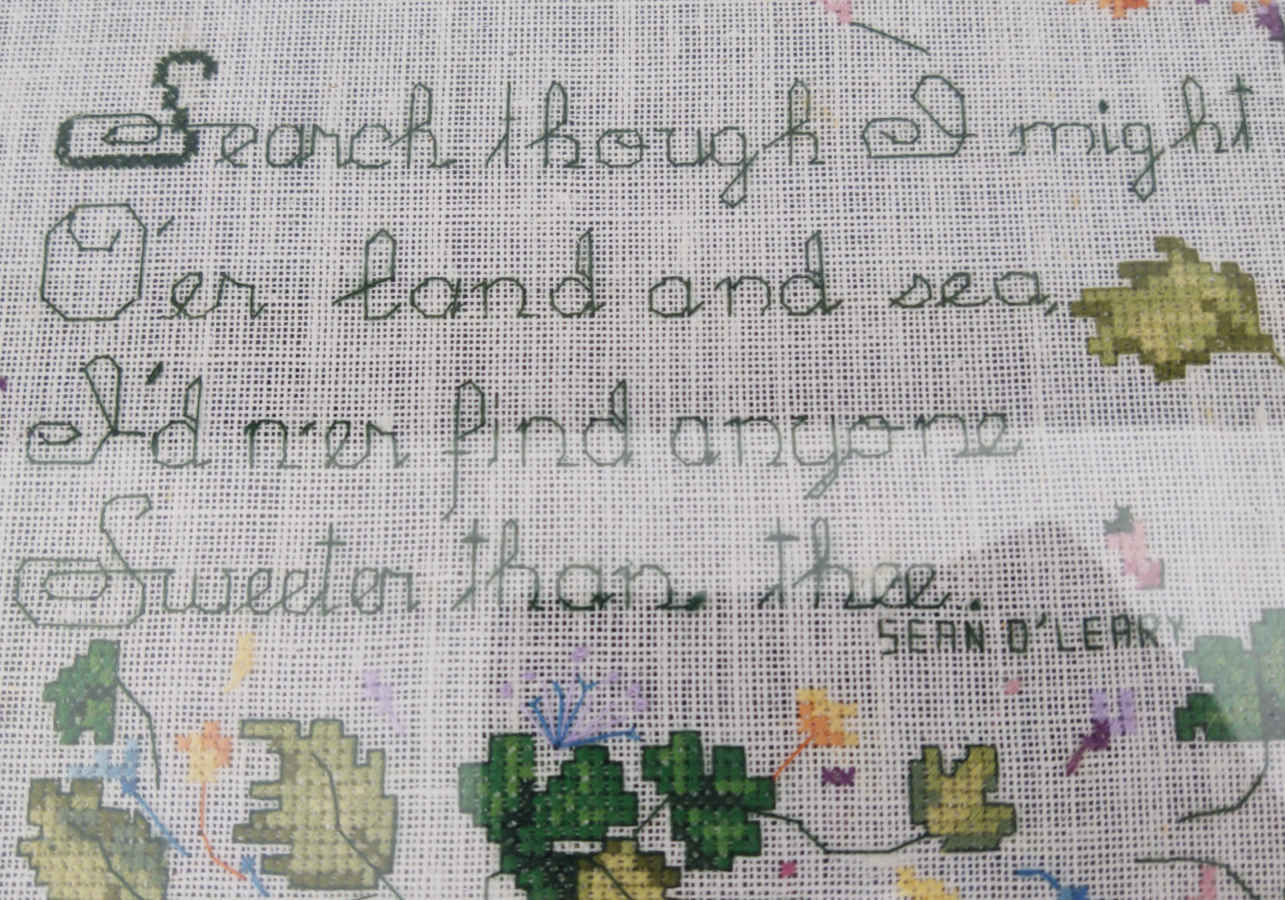 Search though I might
O'er land and sea,
I'd n'er find anyone
Sweeter than, thee.
SEAN O'LEARY